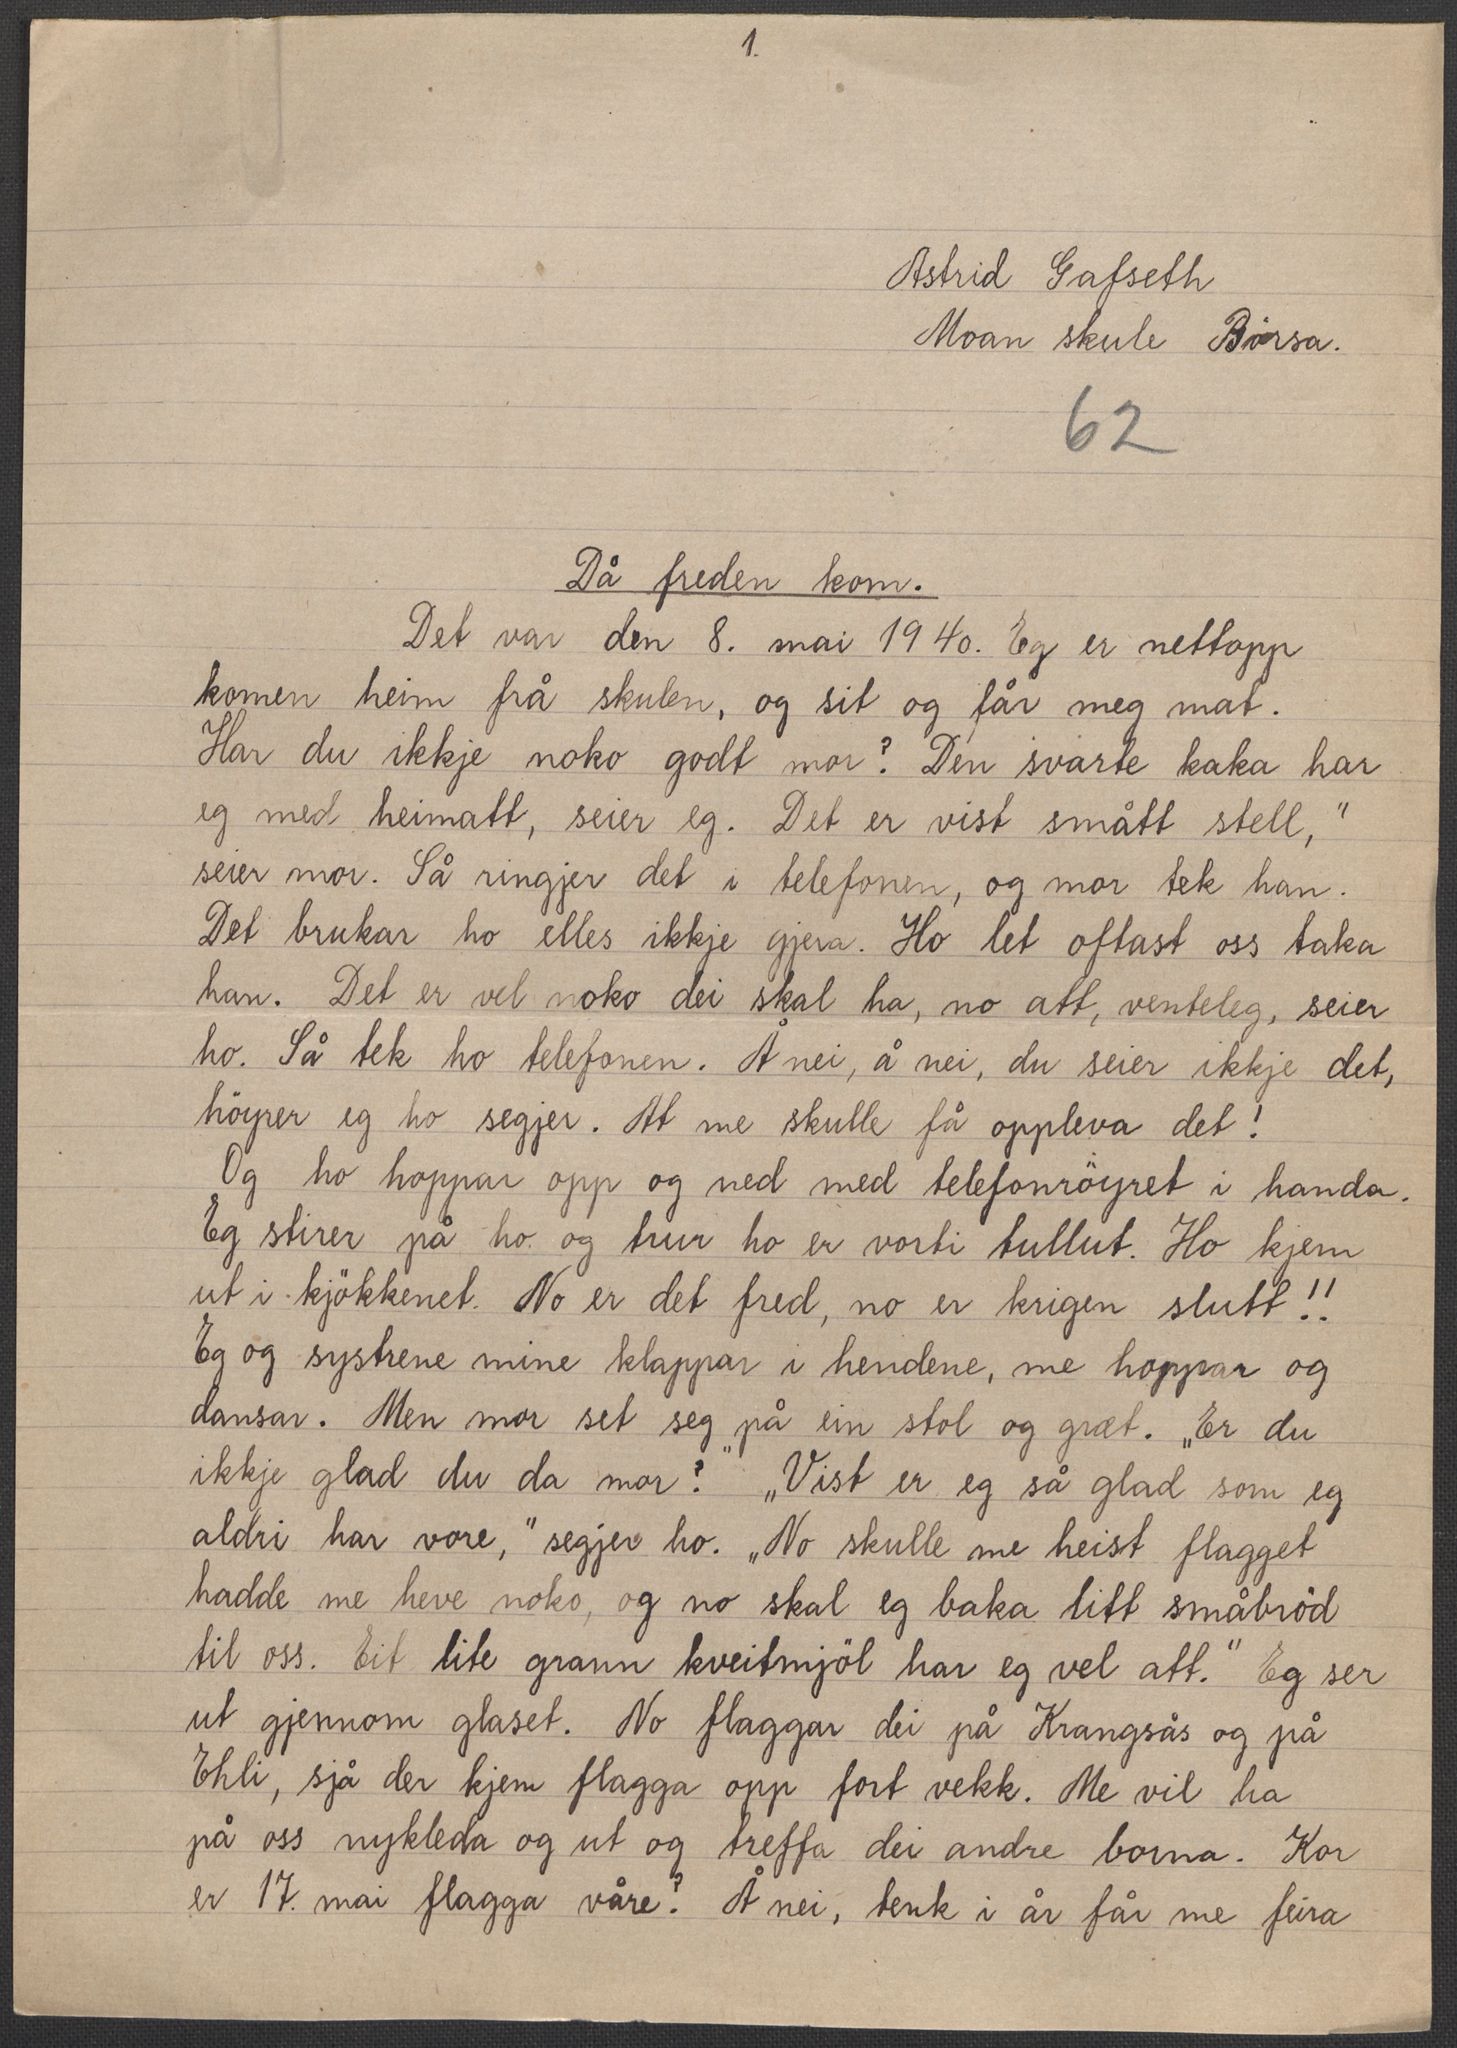 1.
Astrid Gafseth
Moan skule Börsa.
62
Då freden kom.
Det var den 8. mai 1940. Eg er nettopp
komen heim frå skulen, og sit og får meg mat.
Har du ikkje noko godt mor? Den svarte kaka har
eg med heimatt, seier eg. Det er vist smått stell,"
seier mor. Så ringjer det i telefonen, og mor tek han.
Det brukar ho elles ikkje gjera. Ho let oftast oss taka
han. Det er vel noko dei skal ha, no att, venteleg, seier
ho. Så tek ho telefonen. Å nei, å nei, du seier ikkje det,
höyrer eg ho segjer. At me skulle få oppleva det!
Og ho hoppar opp og ned med telefonröyret i handa.
Eg stirer på ho og trur ho er vorti tullut. Ho kjem
ut i kjökkenet. No er det fred, no er krigen slutt!!
Eg og systrene mine klappar i hendene, me hoppar og
dansar. Men mor set seg på ein stol og græt. „Er du
ikkje glad du da mor?" „Vist er eg så glad som eg
aldri har vore," segjer ho. „No skulle me heist flagget
hadde me heve noko, og no skal eg baka litt småbröd
til oss. Eit lite grann kveitmjöl har eg vel att." Eg ser
ut gjennom glaset. No flaggar dei på Krangsås og på
Ehli, sjå der kjem flagga opp fort vekk. Me vil ha
på oss nykleda og ut og treffa dei andre borna. Kor
er 17. mai flagga våre? Å nei, tenk i år får me feira